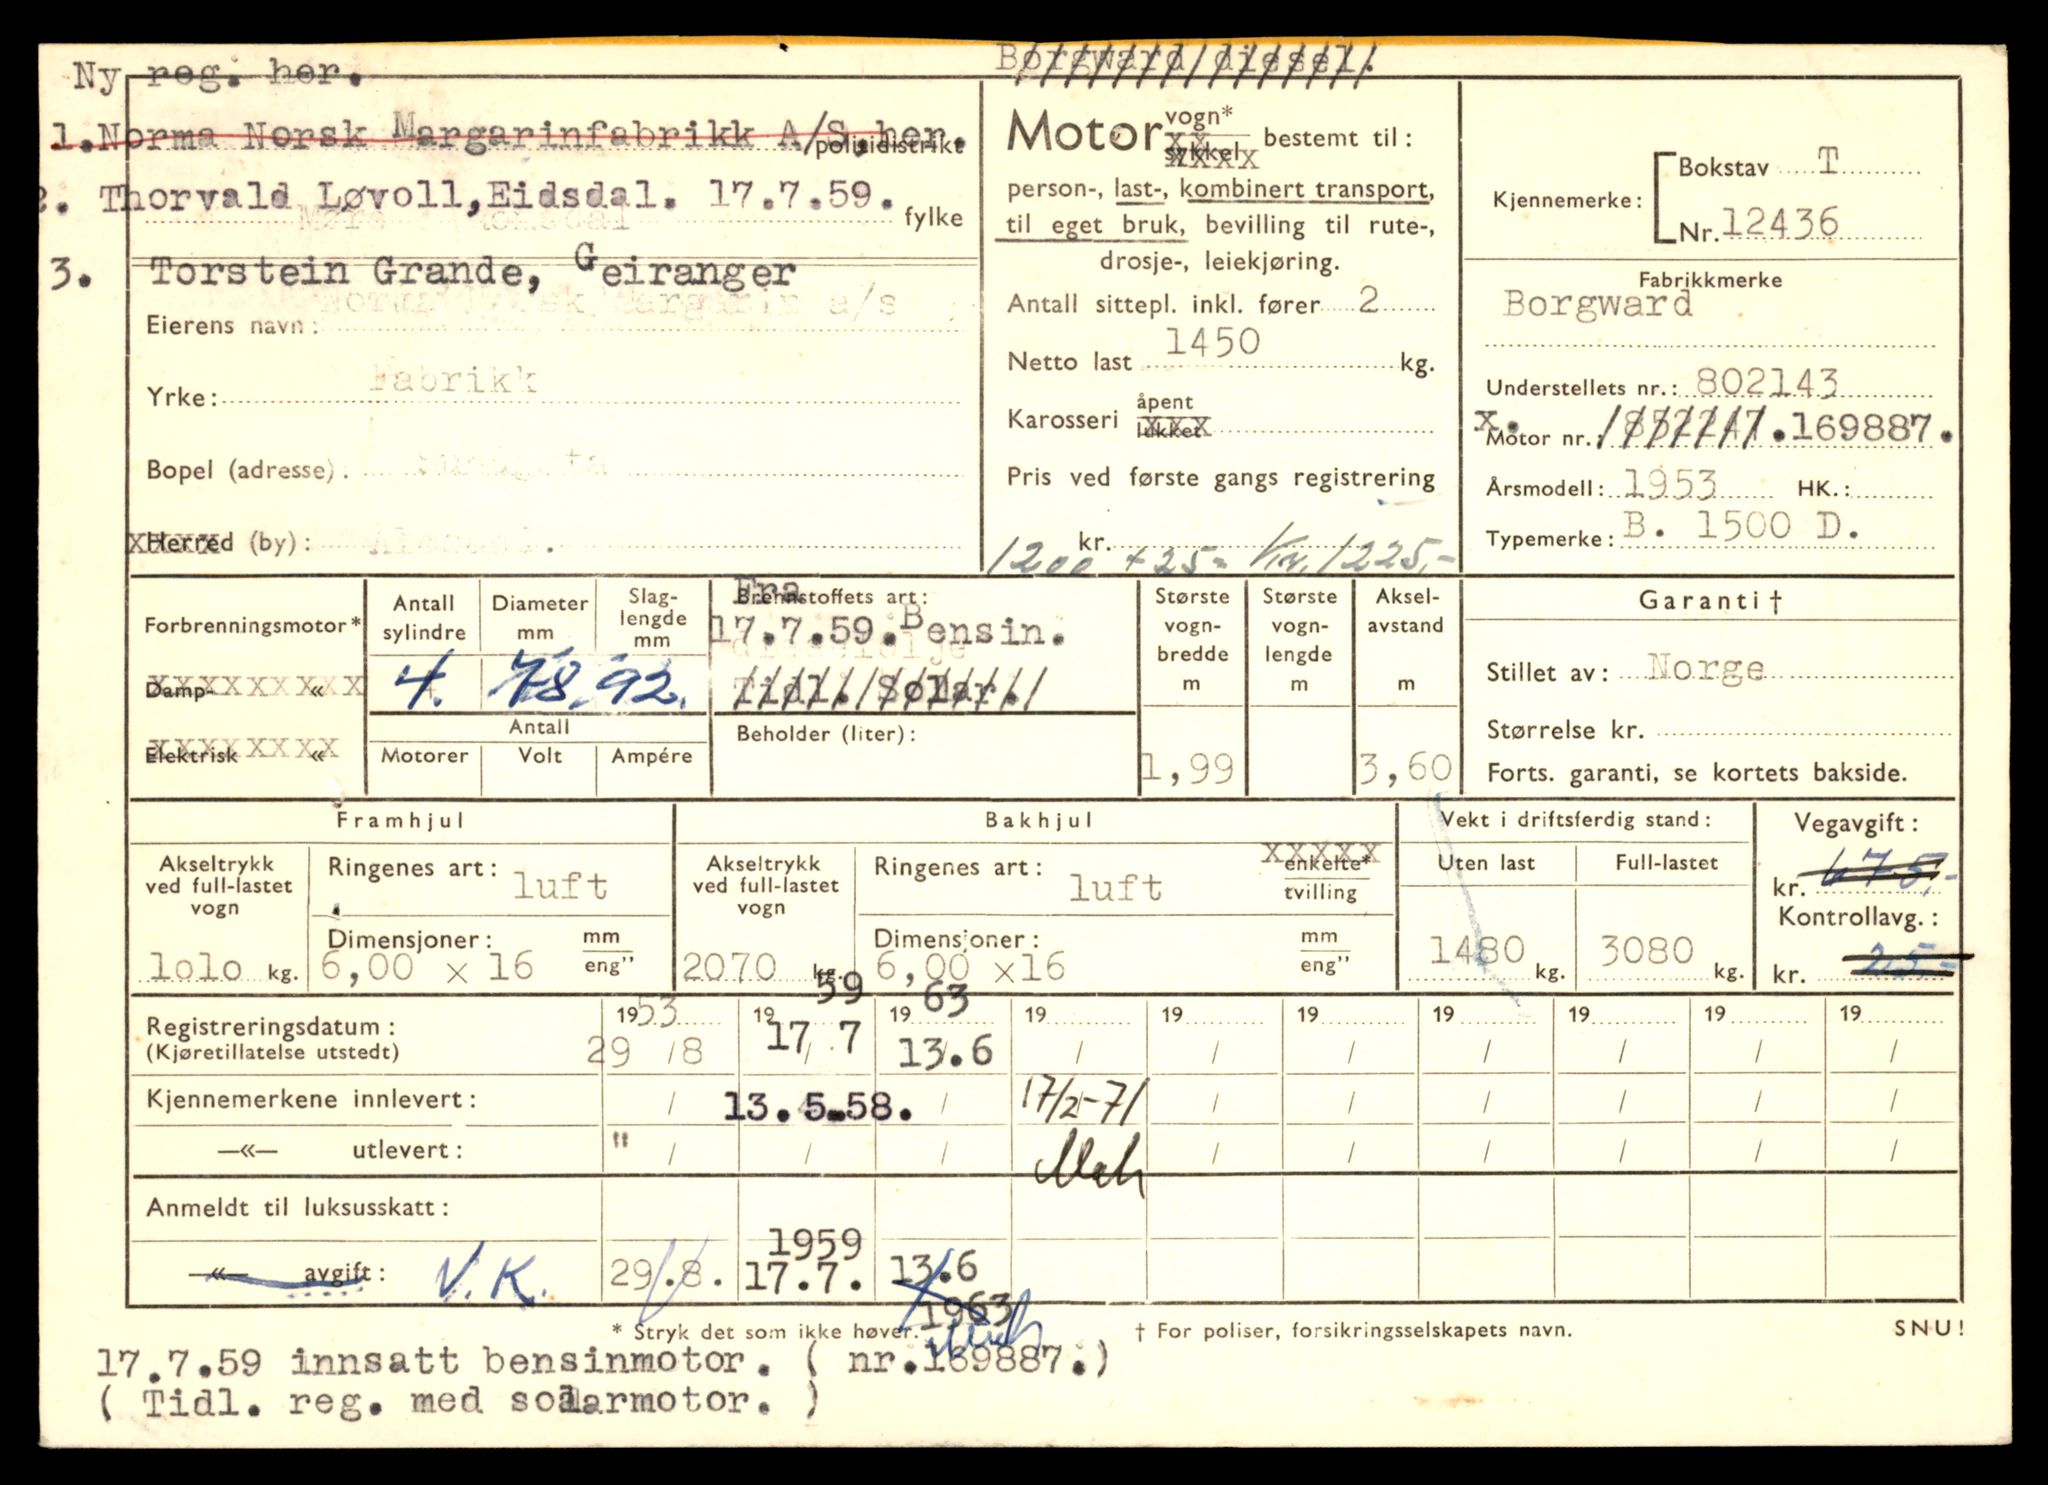 Ny reg. her.
Borgward diesel.
1. Norma Norsk Margarinfabrikk A/S, her.
politidistrikt
2. Thorvald Løvoll, Eidsdal. 17.7.59.
fylke
3. Torstein Grande, Geiranger
Eierens navn:
Yrke: Fabrikk
Bopel (adresse).
Herred (by):
Motor vogn* sykkel bestemt til:
person-, last-, kombinert transport,
til eget bruk, bevilling til rute-,
drosje-, leiekjøring.
Antall sittepl. inkl. fører 2
Netto last 1450 kg.
Karosseri åpent lukket
Pris ved første gangs registrering
kr.
1200 + 25 = Kr. 1225,-
Kjennemerke: Bokstav T
Nr. 12436
Fabrikkmerke
Borgward
Understellets nr.: 802143
x. Motor nr. 169887.
Årsmodell: 1953 HK.:
Typemerke: B. 1500 D.
Forbrenningsmotor*
Damp- «
Elektrisk «
Antall sylindre
Diameter mm
Slaglengde mm
4. 78. 92.
Antall
Motorer Volt Ampére
Fra
Brennstoffets art:
17.7.59. Bensin.
Tidl. Solar.
Beholder (liter):
Største vognbredde m
1,99
Største vognlengde m
Akselavstand m
3,60
Garanti †
Stillet av: Norge
Størrelse kr.
Forts. garanti, se kortets bakside.
Framhjul
Akseltrykk ved full-lastet vogn
1010 kg.
Ringenes art: luft
Dimensjoner: mm eng"
6,00 x 16
Bakhjul
Akseltrykk ved full-lastet vogn
2070 kg.
Ringenes art: luft
enkelte* tvilling
Dimensjoner: mm eng"
6,00 x 16
Vekt i driftsferdig stand:
Uten last Full-lastet
1480 kg. 3080 kg.
Vegavgift:
kr. 675,-
Kontrollavg.:
kr. 25,-
Registreringsdatum: 1953 19 59 19 63 19 19 19 19 19 19 19
(Kjøretillatelse utstedt) 29/8 17/7 13.6
Kjennemerkene innlevert: 13.5.58. 17/2-71
—«— utlevert: "
Anmeldt til luksusskatt:
—«— avgift: V.K. 29.8. 1959 17.7. 13.6 1963
* Stryk det som ikke høver.
† For poliser, forsikringsselskapets navn.
SNU!
17.7.59 innsatt bensinmotor. ( nr.169887.)
( Tidl. reg. med solarmotor. )